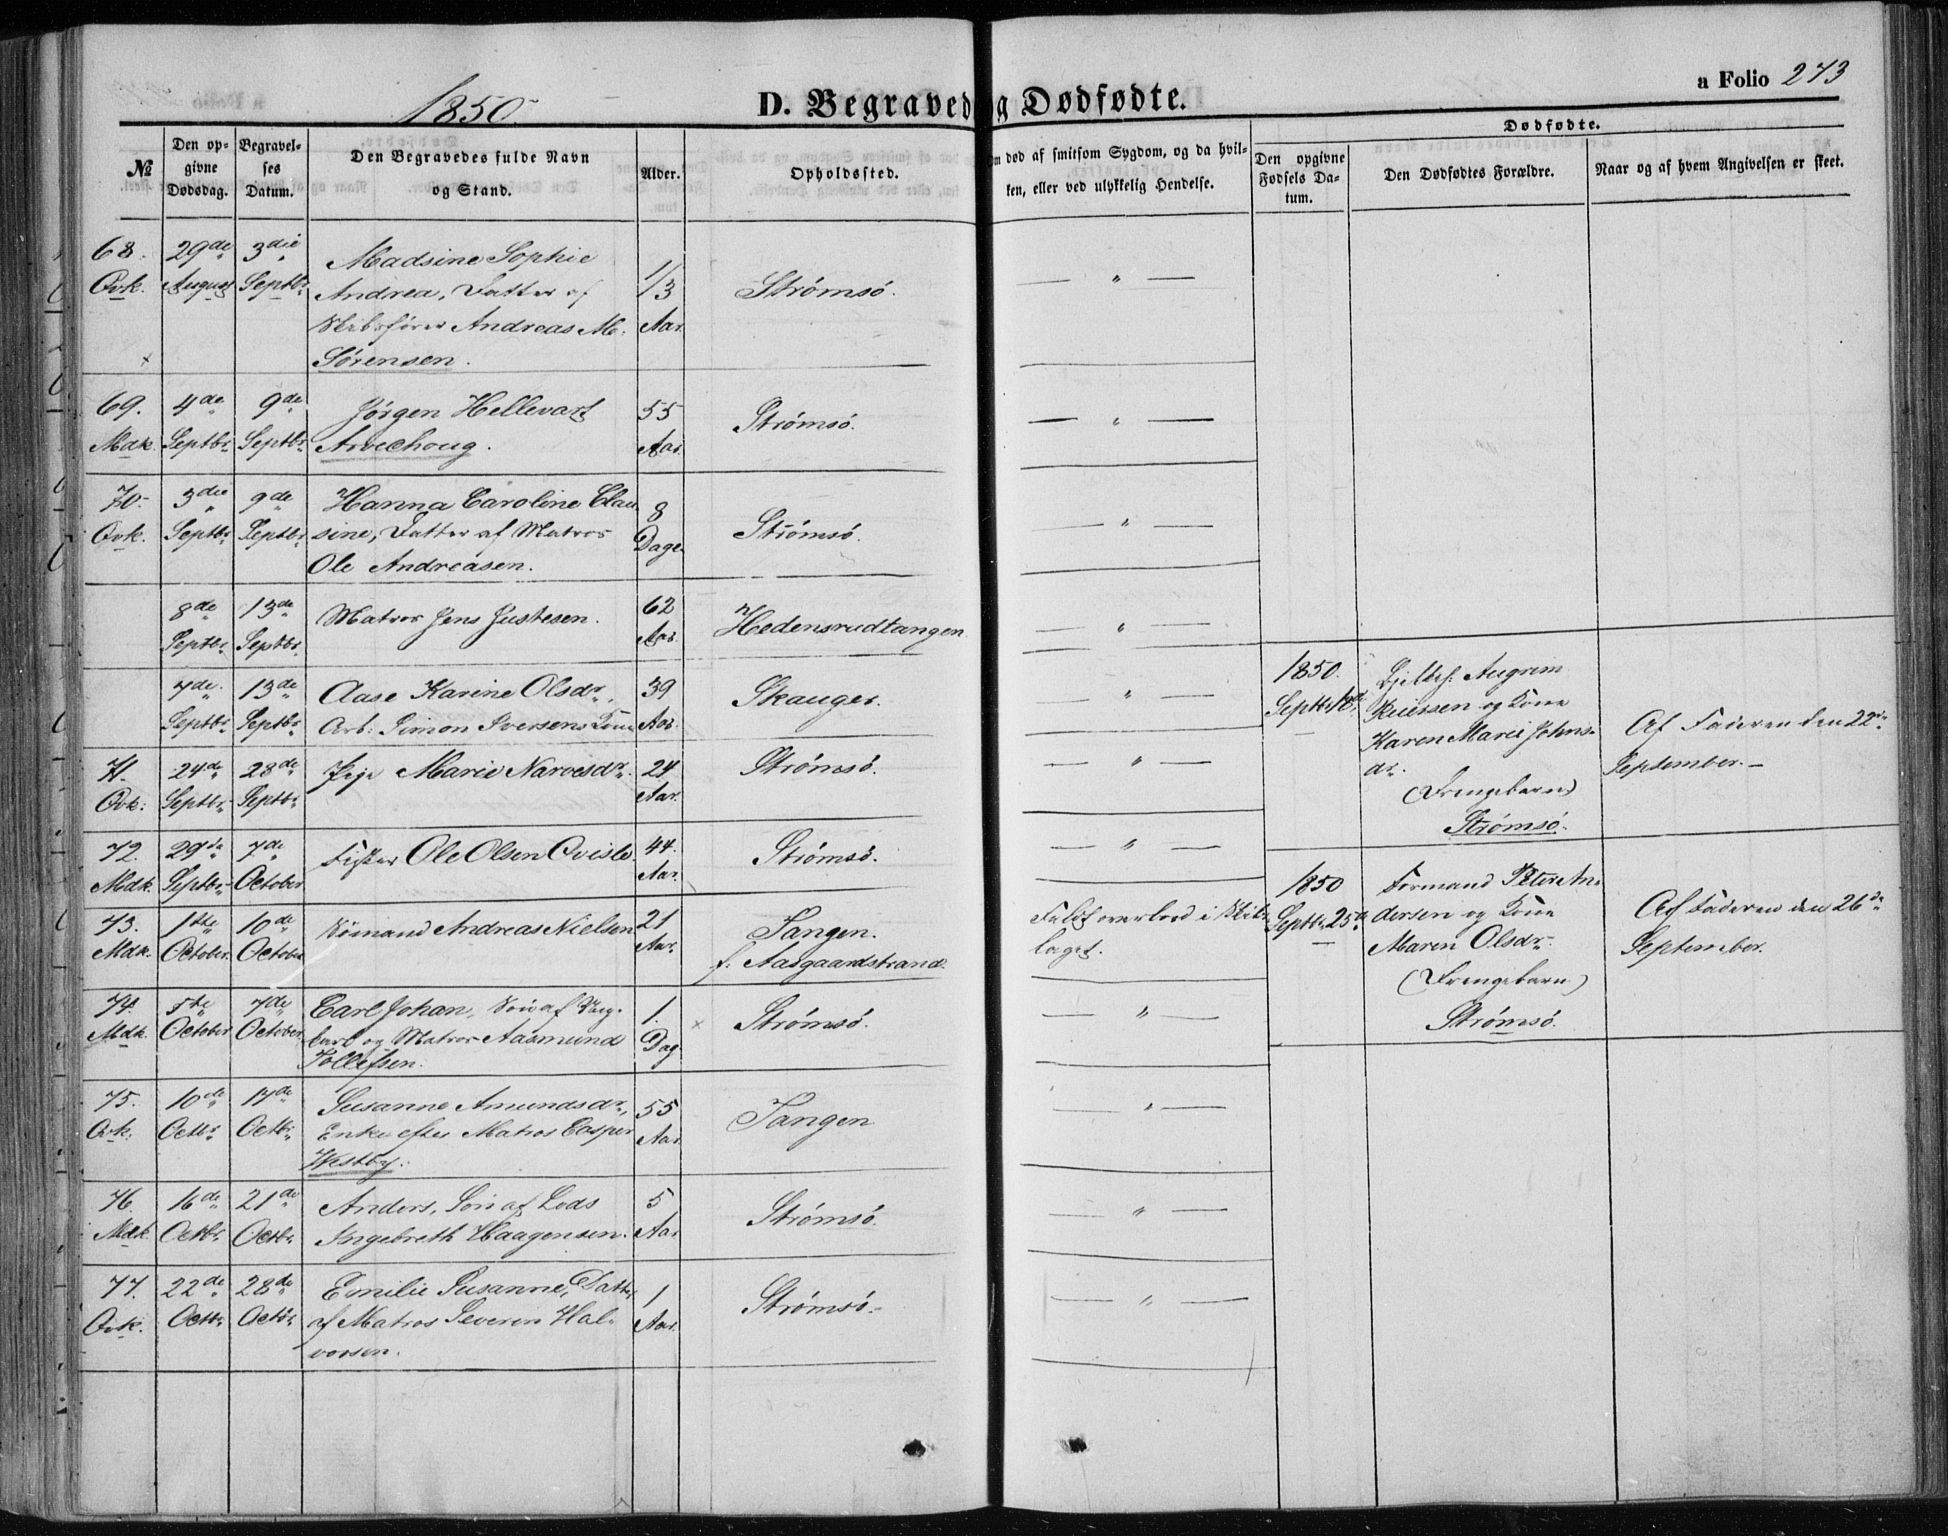 1850.
D. Begravede og Dødfødte.
a Folio 273
№
Den opgivne Dødsdag.
Begravelses Datum.
Den Begravedes fulde Navn og Stand.
Alder.
Opholdssted.
Om død af smitsom Sygdom, og da hvilken, eller ved ulykkelig Hendelse.
Dødfødte.
Den opgivne Fødsels Datum.
Den Dødfødtes Forældre.
Naar og af hvem Angivelsen er skeet.
68. Qvk. 29de August 3die Septbr.
Madsine Sophie
Andrea, Datter af
Skibsfører Andreas M.
Sörensen.
1/3 Aar.
Strömsö. — " —
69. Mdk. 4de Septbr. 9de Septbr.
Jörgen Hellevart
Arvehoug.
55 Aar.
Strömsö. — " —
70. Qvk. 3die Septbr. 9de Septbr.
Hanna Caroline Clau
sine, Datter af Matros
Ole Andreasen.
8 Dage
Strömsö. — " —
8de Septbr. 13de Septbr.
Matros Jens Justesen.
62 Aar.
Hedensrudtangen — " —
7de Septbr. 13de Septbr.
Aase Karine Olsdr.,
Arb: Simon Iversens Kone
39 Aar.
Skauger. — " —
71. Qvk. 24de Septbr. 28de Septbr.
Pige Marie Narvesdr.
24 Aar.
Strömsö. — " —
72. Mdk. 29de Septbr. 7de October
Fisker Ole Olsen Qvisle
44. Aar.
Strömsö. — " —
73. Mdk. 1ste October. 10de October
Sömand Andreas Nielsen
21 Aar.
Tangen.
f: Aasgaardstrand.
Faldt overbord i Skibs
laget.
74. Mdk. 5te October 7de October.
Carl Johan, Sön af
og Matros Aasmund
Tollefsen.
1. Dag
Strömsö. — " —
75. Qvk. 10de Octbr. 17de Octbr.
Susanne Amundsdr.,
Enke efter Matros Casper
Westby.
55 Aar
Tangen — " —
76. Mdk. 16de Octbr. 21de Octbr.
Anders, Sön af Lods
Ingebreth Haagensen.
5 Aar
Strömsö. — " —
77. Qvk. 22de Octbr. 28de Octbr.
Emilie Susanne, Datter
af Matros Severin Hal-
vorsen.
1 Aar.
Strömsö. — " —
1850.
Septbr.
Augrim
og Kone
Karen Marie Johns-
dr.
(Drengebarn)
Strömsö.
Af Faderen den 22de
September.
1850
Septbr. 25de
Formand Peter An
dersen og Kone
Maren Olsdr.
(Drengebarn)
Strömsö.
Af Faderen den 26de
September.